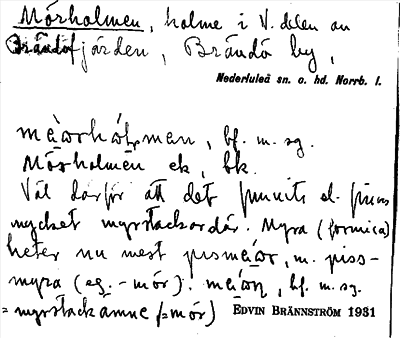 Mörholmen, holme i N. delen av
Brändöfjärden, Brändö by,
Nederluleå sn. o. hd. Norrb. l.
mɛ̀ȧorhȯ́lmen, bf. m. sg.
Mörholmen ek, bk.
Väl därför att det funnits el. finns
mycket myrstackar där. Myra (formica)
heter nu mest pismɛ́aor, m. piss-
myra (eg. -mör). mɛ́aon, bf. m. sg.
= myrstackämne (=mör) EDVIN BRÄNNSTRÖM 1931